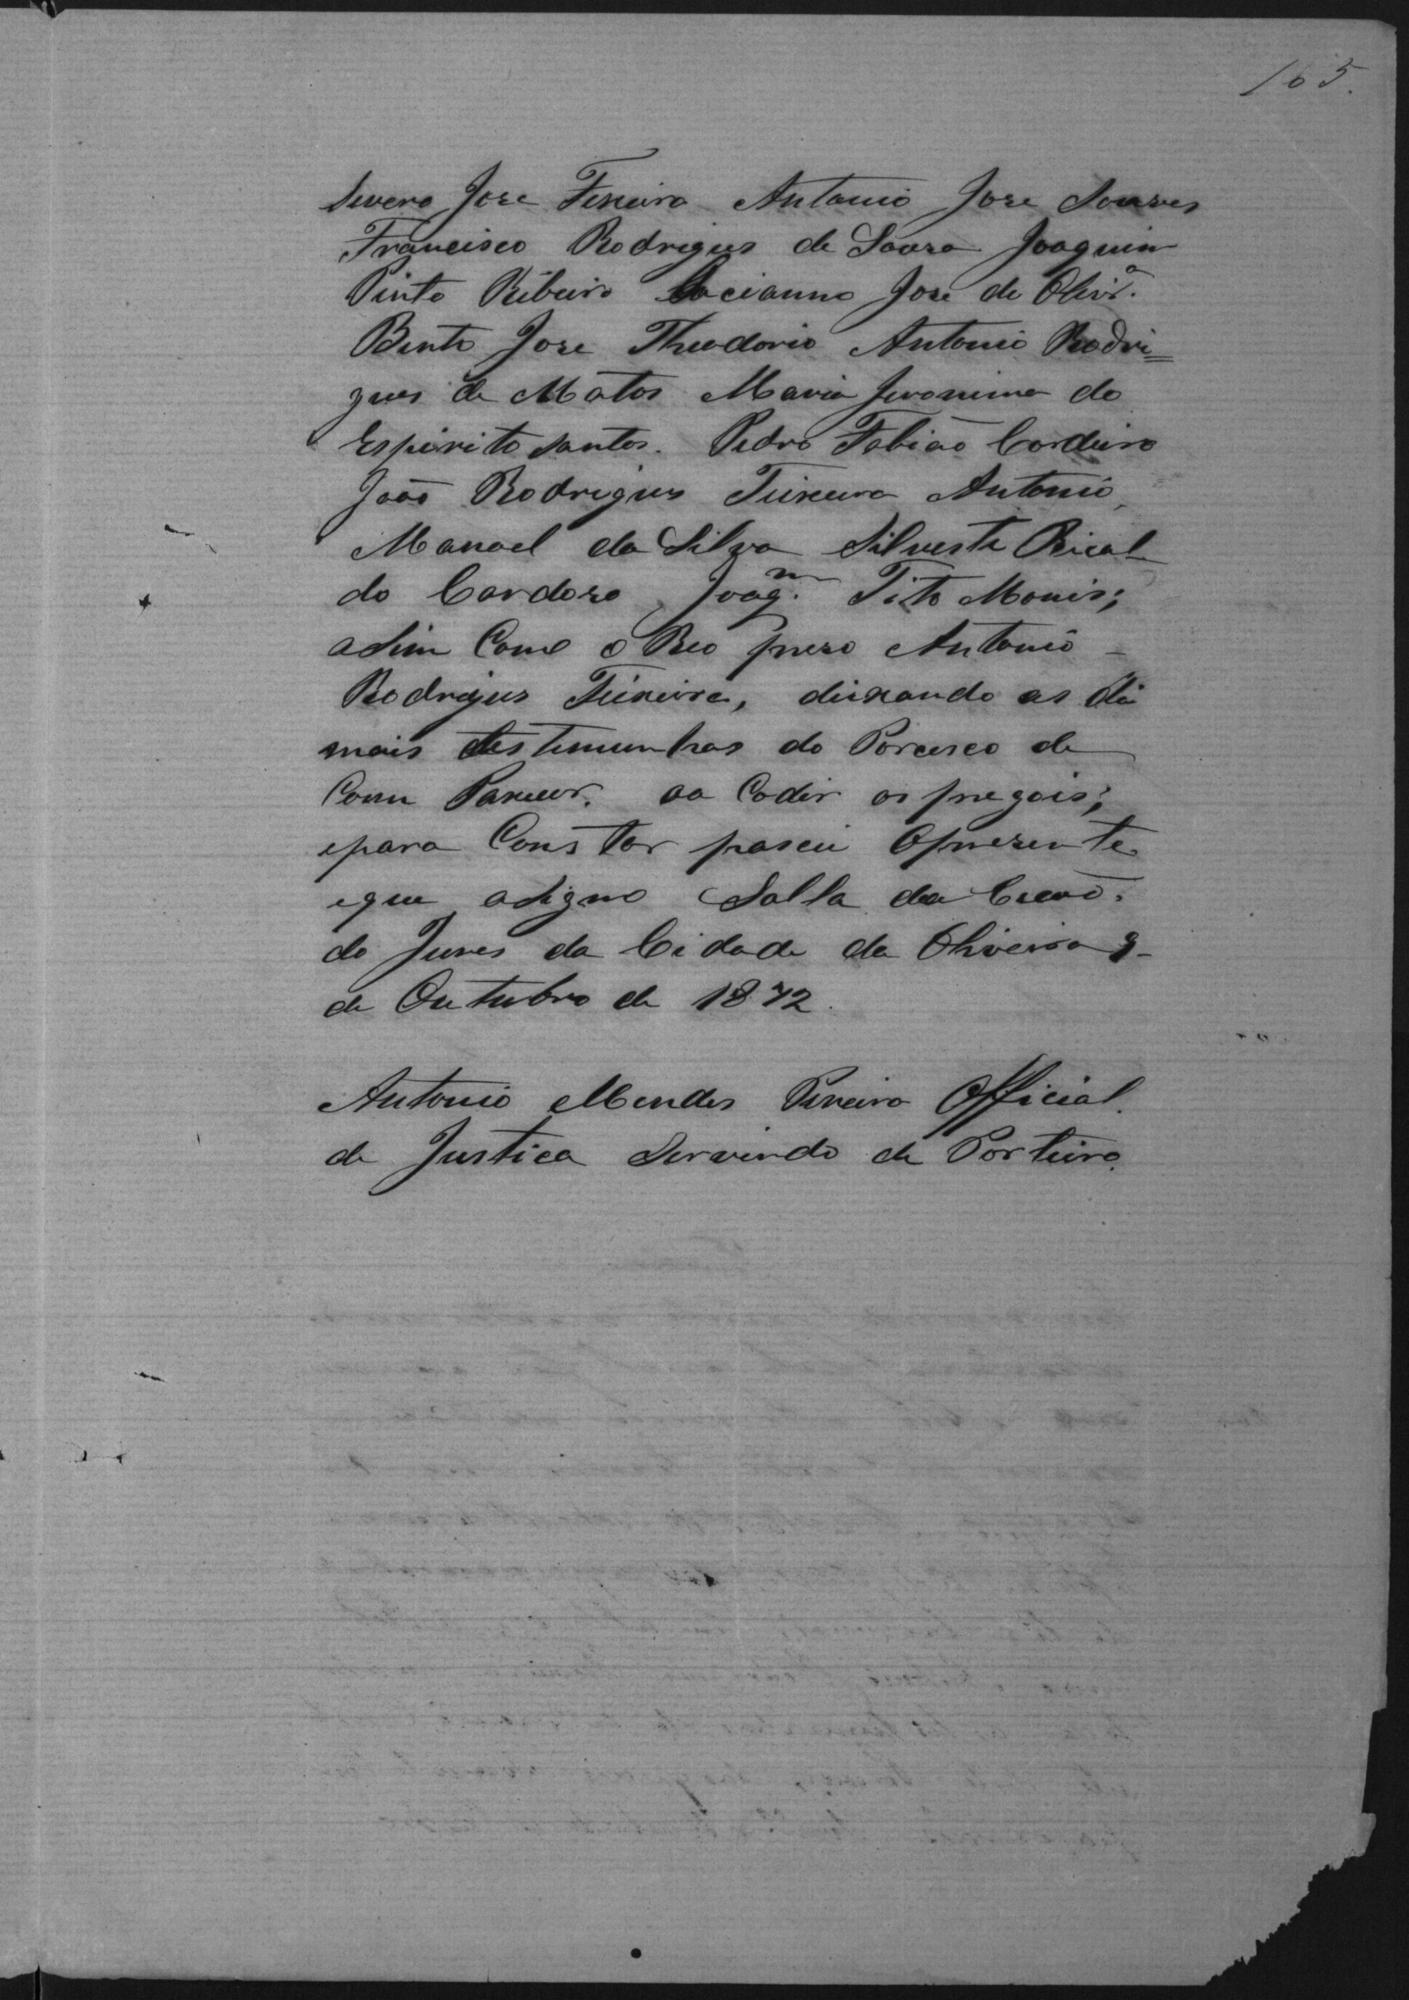 165.
Severo Jose Fereira Antonio Jose Soares
Francisco Rodrigues de Souza Joaquim
Pinto Ribeiro Lucianno Jose de Olivr.ª
Bento Jose Theodorio Antonio Rodri=
gues de Matos Maria Jeronima do
Espirito Santos. Pedro Fabião Cordeiro
João Rodrigues Teixeira Antonio
Manoel da Silva Silveste Rical
do Cardozo Joaq.m Tito Monis;
asim Como o Reo prezo Antonio -
Rodrigues Teixeira, deixando as de
mais testemunhas do Porceseo de
Com Parecer. ao Codir os pregois;
epara Constar pasei Oprezente
eque asigno Salla da
do Jures da Cidade da Oliveira 9-
de Outubro de 1872.
Antonio Mendes Pereira Official
de Justica Servindo de Porteiro.